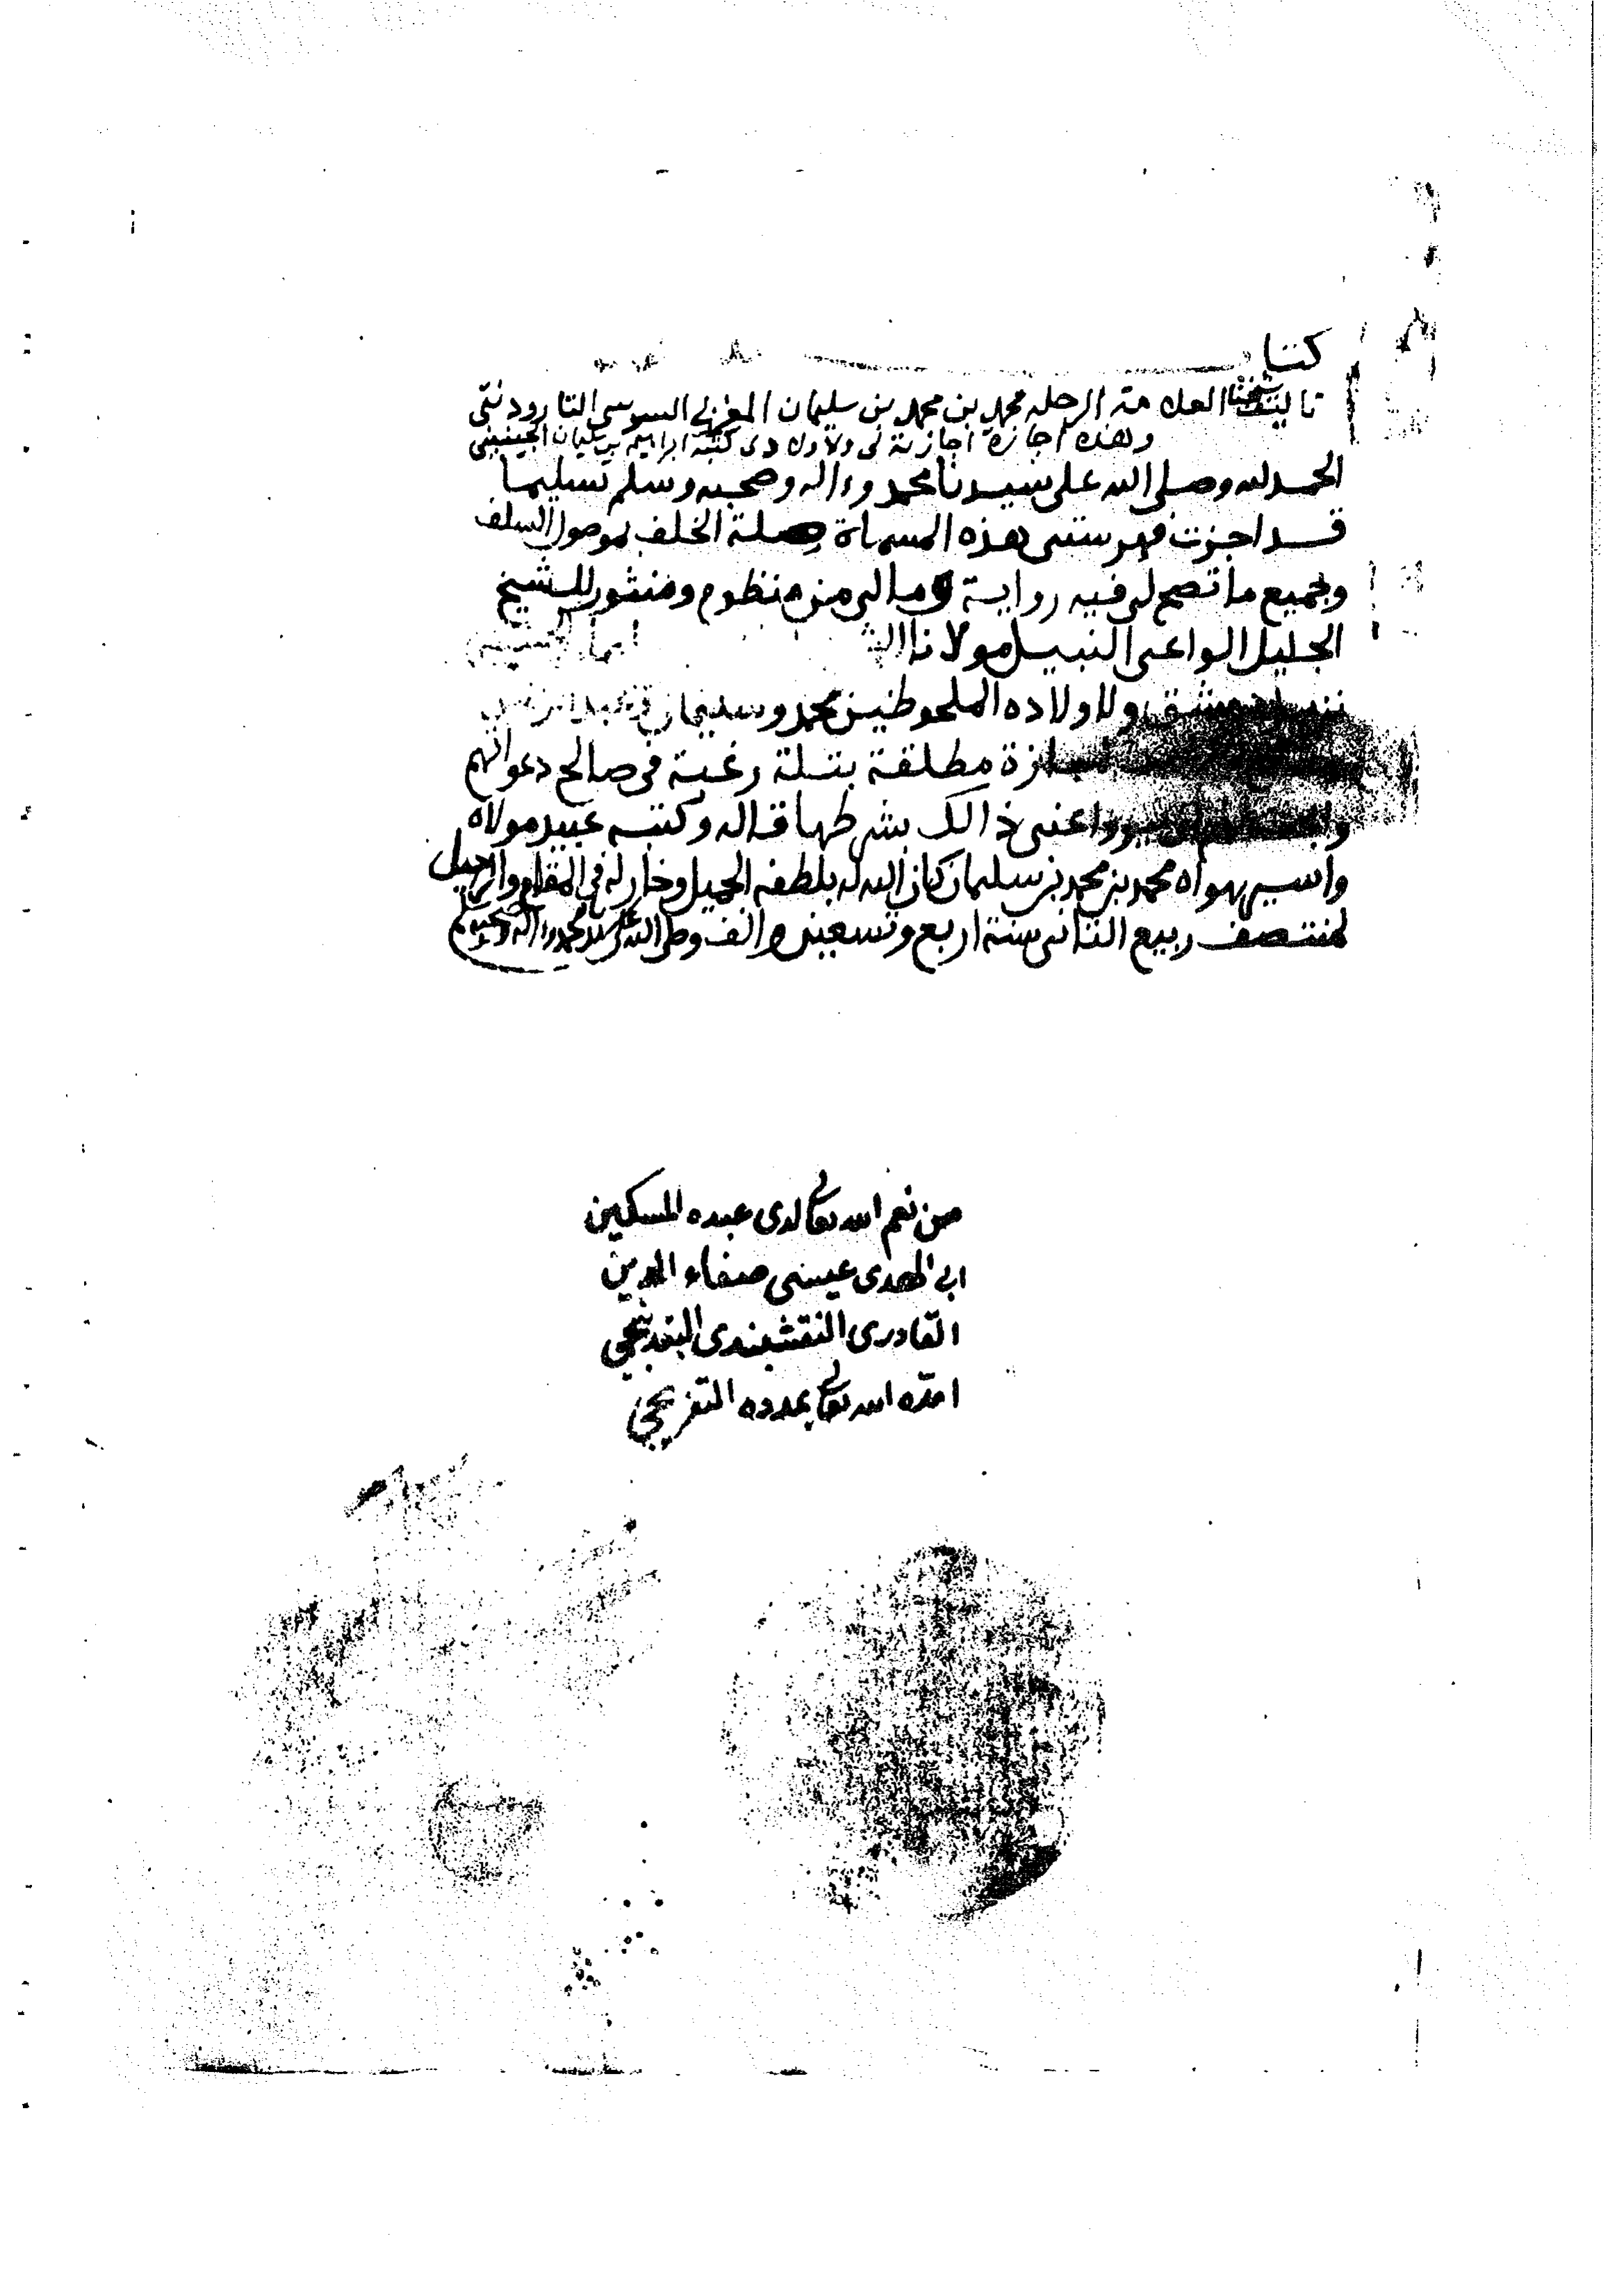 كتاب
تاليف شيخنا العلامة الرحلة محمد بن محمد بن سليمان المغربي السوسي التارودنتي
وهذه اجازة اجازنة لي ولاولادي كتبه ابراهيم بن سليمان الجينيني
الحمد لله وصلى الله على سيدنا محمد وءاله وصحبه وسلم تسليما
قد اجزت فهرستى هذه المسماة صلة الخلف بموصول السلف
وبجميع ما تصح لى فيه رواية وما لى من منظوم ومنثور للشيخ
الجليل الواعى النبيل مولانا
دمشق ولاولاده الملحوظين محمد وسليمان
اجازة مطلقة بتلة رغبة فى صالح دعواتهم
عنى ذالك بشرطها قاله وكتبه عبيد مولاه
واسير هواه محمد بن محمد بن سليمان كان الله له بلطفه الجميل وخار له فى المقام والرحيل
لمنتصف ربيع الثانى سنة اربع وتسعين والف وصلى الله على سيدنا محمد وءاله وصحبه وسلم
من نعم الله تعالى لدى عبده المسكين
ابي الهدى عيسى صفاء الدين
القادرى النقشبندى البندنيجي
امده الله تعالى بمدده